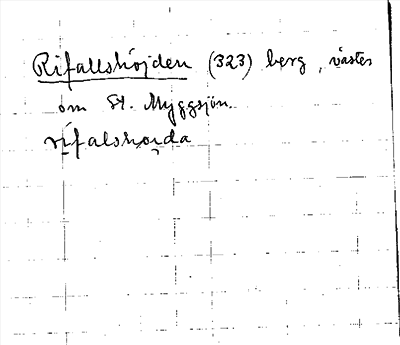 Rifallshöjden (323) berg, väster
om St. Myggsjön.
rifalshöida